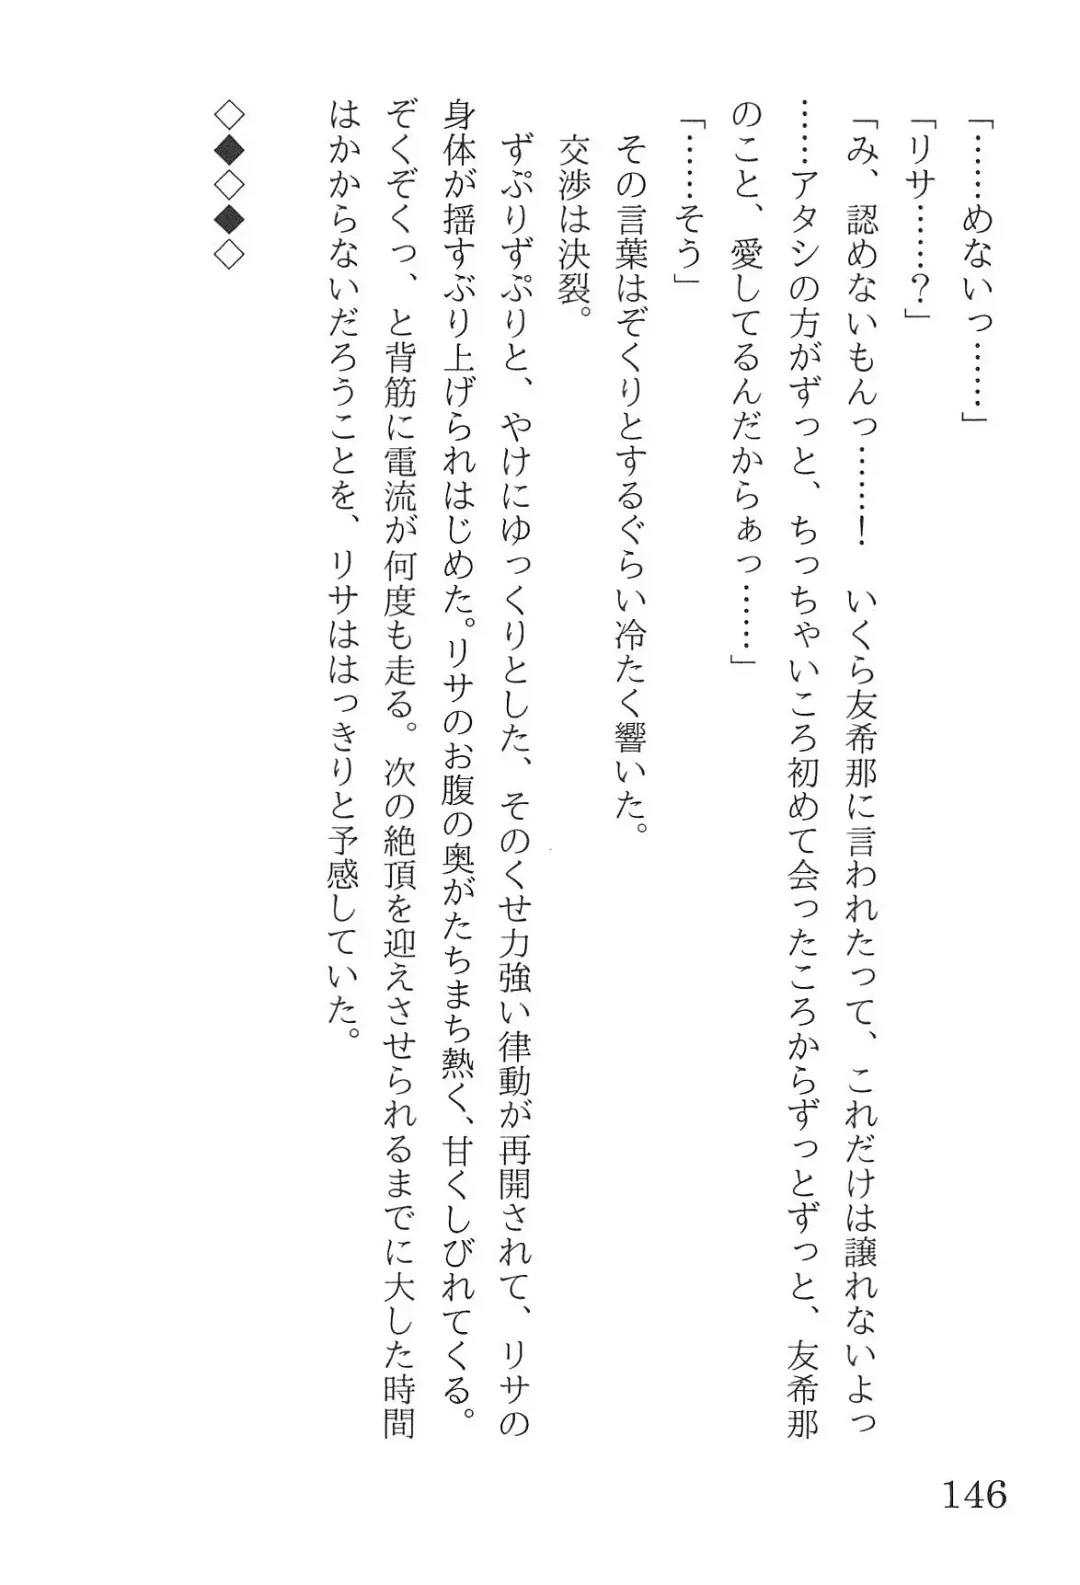 「……めないっ……」
「リサ……？」
「み、認めないもんっ……！　いくら友希那に言われたって、これだけは譲れないよっ
……アタシの方がずっと、ちっちゃいころ初めて会ったころからずっとずっと、友希那
のこと、愛してるんだからぁっ……」
「……そう」
　その言葉はぞくりとするぐらい冷たく響いた。
　交渉は決裂。
　ずぷりずぷりと、やけにゆっくりとした、そのくせ力強い律動が再開されて、リサの
身体が揺すぶり上げられはじめた。リサのお腹の奥がたちまち熱く、甘くしびれてくる。
ぞくぞくっ、と背筋に電流が何度も走る。次の絶頂を迎えさせられるまでに大した時間
はかからないだろうことを、リサははっきりと予感していた。
◇◆◇◆◇
146